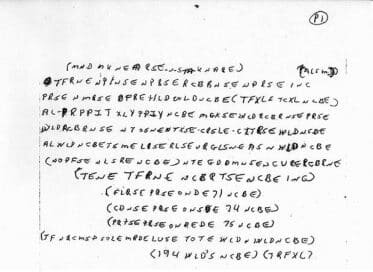 P1
(MND MKNEARSE-N-S-M-KNARE) (ACSM)
TFRNE NPTNSENPBSERCBBNSENPRSE INC
PRSE NMRSE OPREHLDWLDNCBE (TFXLF TCXL NCBE)
AL-PRPPIT XLYPPIY NCBE MGKSE WLDRCBRNSE PRSE
WLDRCBRNSE NTSSNENTXSE-CRSLE-CITRSE WLDNSDE
ALWLDNCBE TSMELRSERLSE URGLSNEASN WLDNCBE
(NOPFSE NLSRE NCBE) NTEGDDMNSENCURERCBRNE
(TENE TFRNE NCBRTSE NCBE INC)
(FIRSE PRSE ONDE 71 NCBE)
(CDNSE PRSE ONSDE 74 NCBE)
(PRTSE PRSE ONREDE 75 NCBE)
(TFNRCMSP SOLE MRDE LUSE TOTE WLD N WLD NCBE)
(194 WLD'S NCBE) (TRFXL)